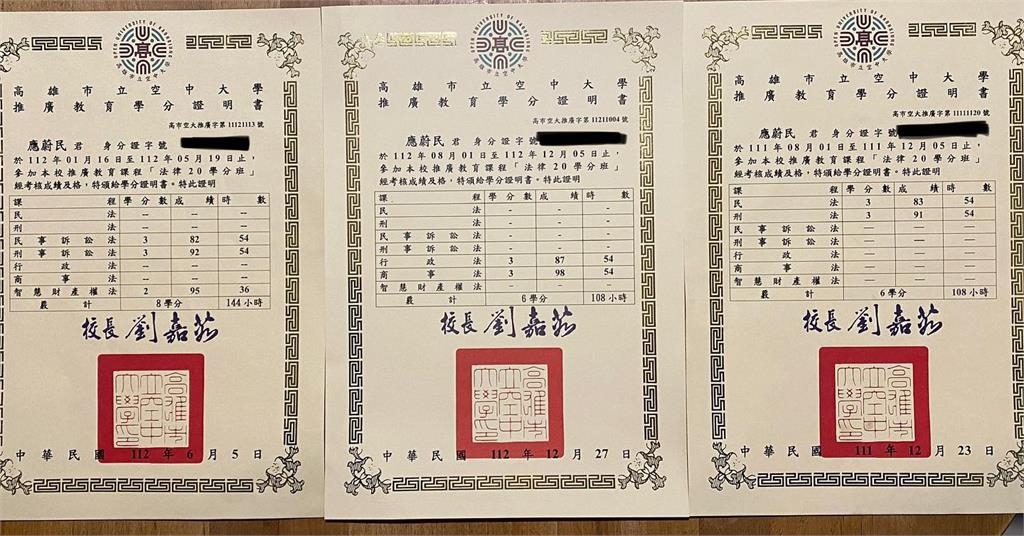 UNIVERSITY OF KAOH
高雄市立空中大學
高雄市立空中大學
推廣教育學分證明書
高市空大推廣字第11121113號
應蔚民 君 身分證字號
於 112 年 01 月 16 日至 112 年 05 月 19 日止，
參加本校推廣教育課程「法律20學分班」
經考核成績及格，特頒給學分證明書。特此證明
課程 學分數 成績 時數
民法 -- -- --
刑法 -- -- --
民事訴訟法 3 82 54
刑事訴訟法 3 92 54
行政法 -- -- --
商事法 -- -- --
智慧財產權法 2 95 36
總計 8學分 144小時
校長 劉嘉茹
高雄市立空中大學印
中華民國 112 年 6 月 5 日
UNIVERSITY OF KAOH
高雄市立空中大學
高雄市立空中大學
推廣教育學分證明書
高市空大推廣字第11211004號
應蔚民 君 身分證字號
於 112 年 08 月 01 日至 112 年 12 月 05 日止，
參加本校推廣教育課程「法律20學分班」
經考核成績及格，特頒給學分證明書。特此證明
課程 學分數 成績 時數
民法 - - -
刑法 - - -
民事訴訟法 - - -
刑事訴訟法 - - -
行政法 3 87 54
商事法 3 98 54
智慧財產權法 - - -
總計 6學分 108小時
校長 劉嘉茹
高雄市立空中大學印
中華民國 112 年 12 月 27 日
UNIVERSITY OF KAOH
高雄市立空中大學
高雄市立空中大學
推廣教育學分證明書
高市空大推廣字第11111120號
應蔚民 君 身分證字號
於 111 年 08 月 01 日至 111 年 12 月 05 日止，
參加本校推廣教育課程「法律20學分班」
經考核成績及格，特頒給學分證明書。特此證明
課程 學分數 成績 時數
民法 3 83 54
刑法 3 91 54
民事訴訟法 — — —
刑事訴訟法 — — —
行政法 — — —
商事法 — — —
智慧財產權法 — — —
總計 6學分 108小時
校長 劉嘉茹
高雄市立空中大學印
中華民國 111 年 12 月 23 日